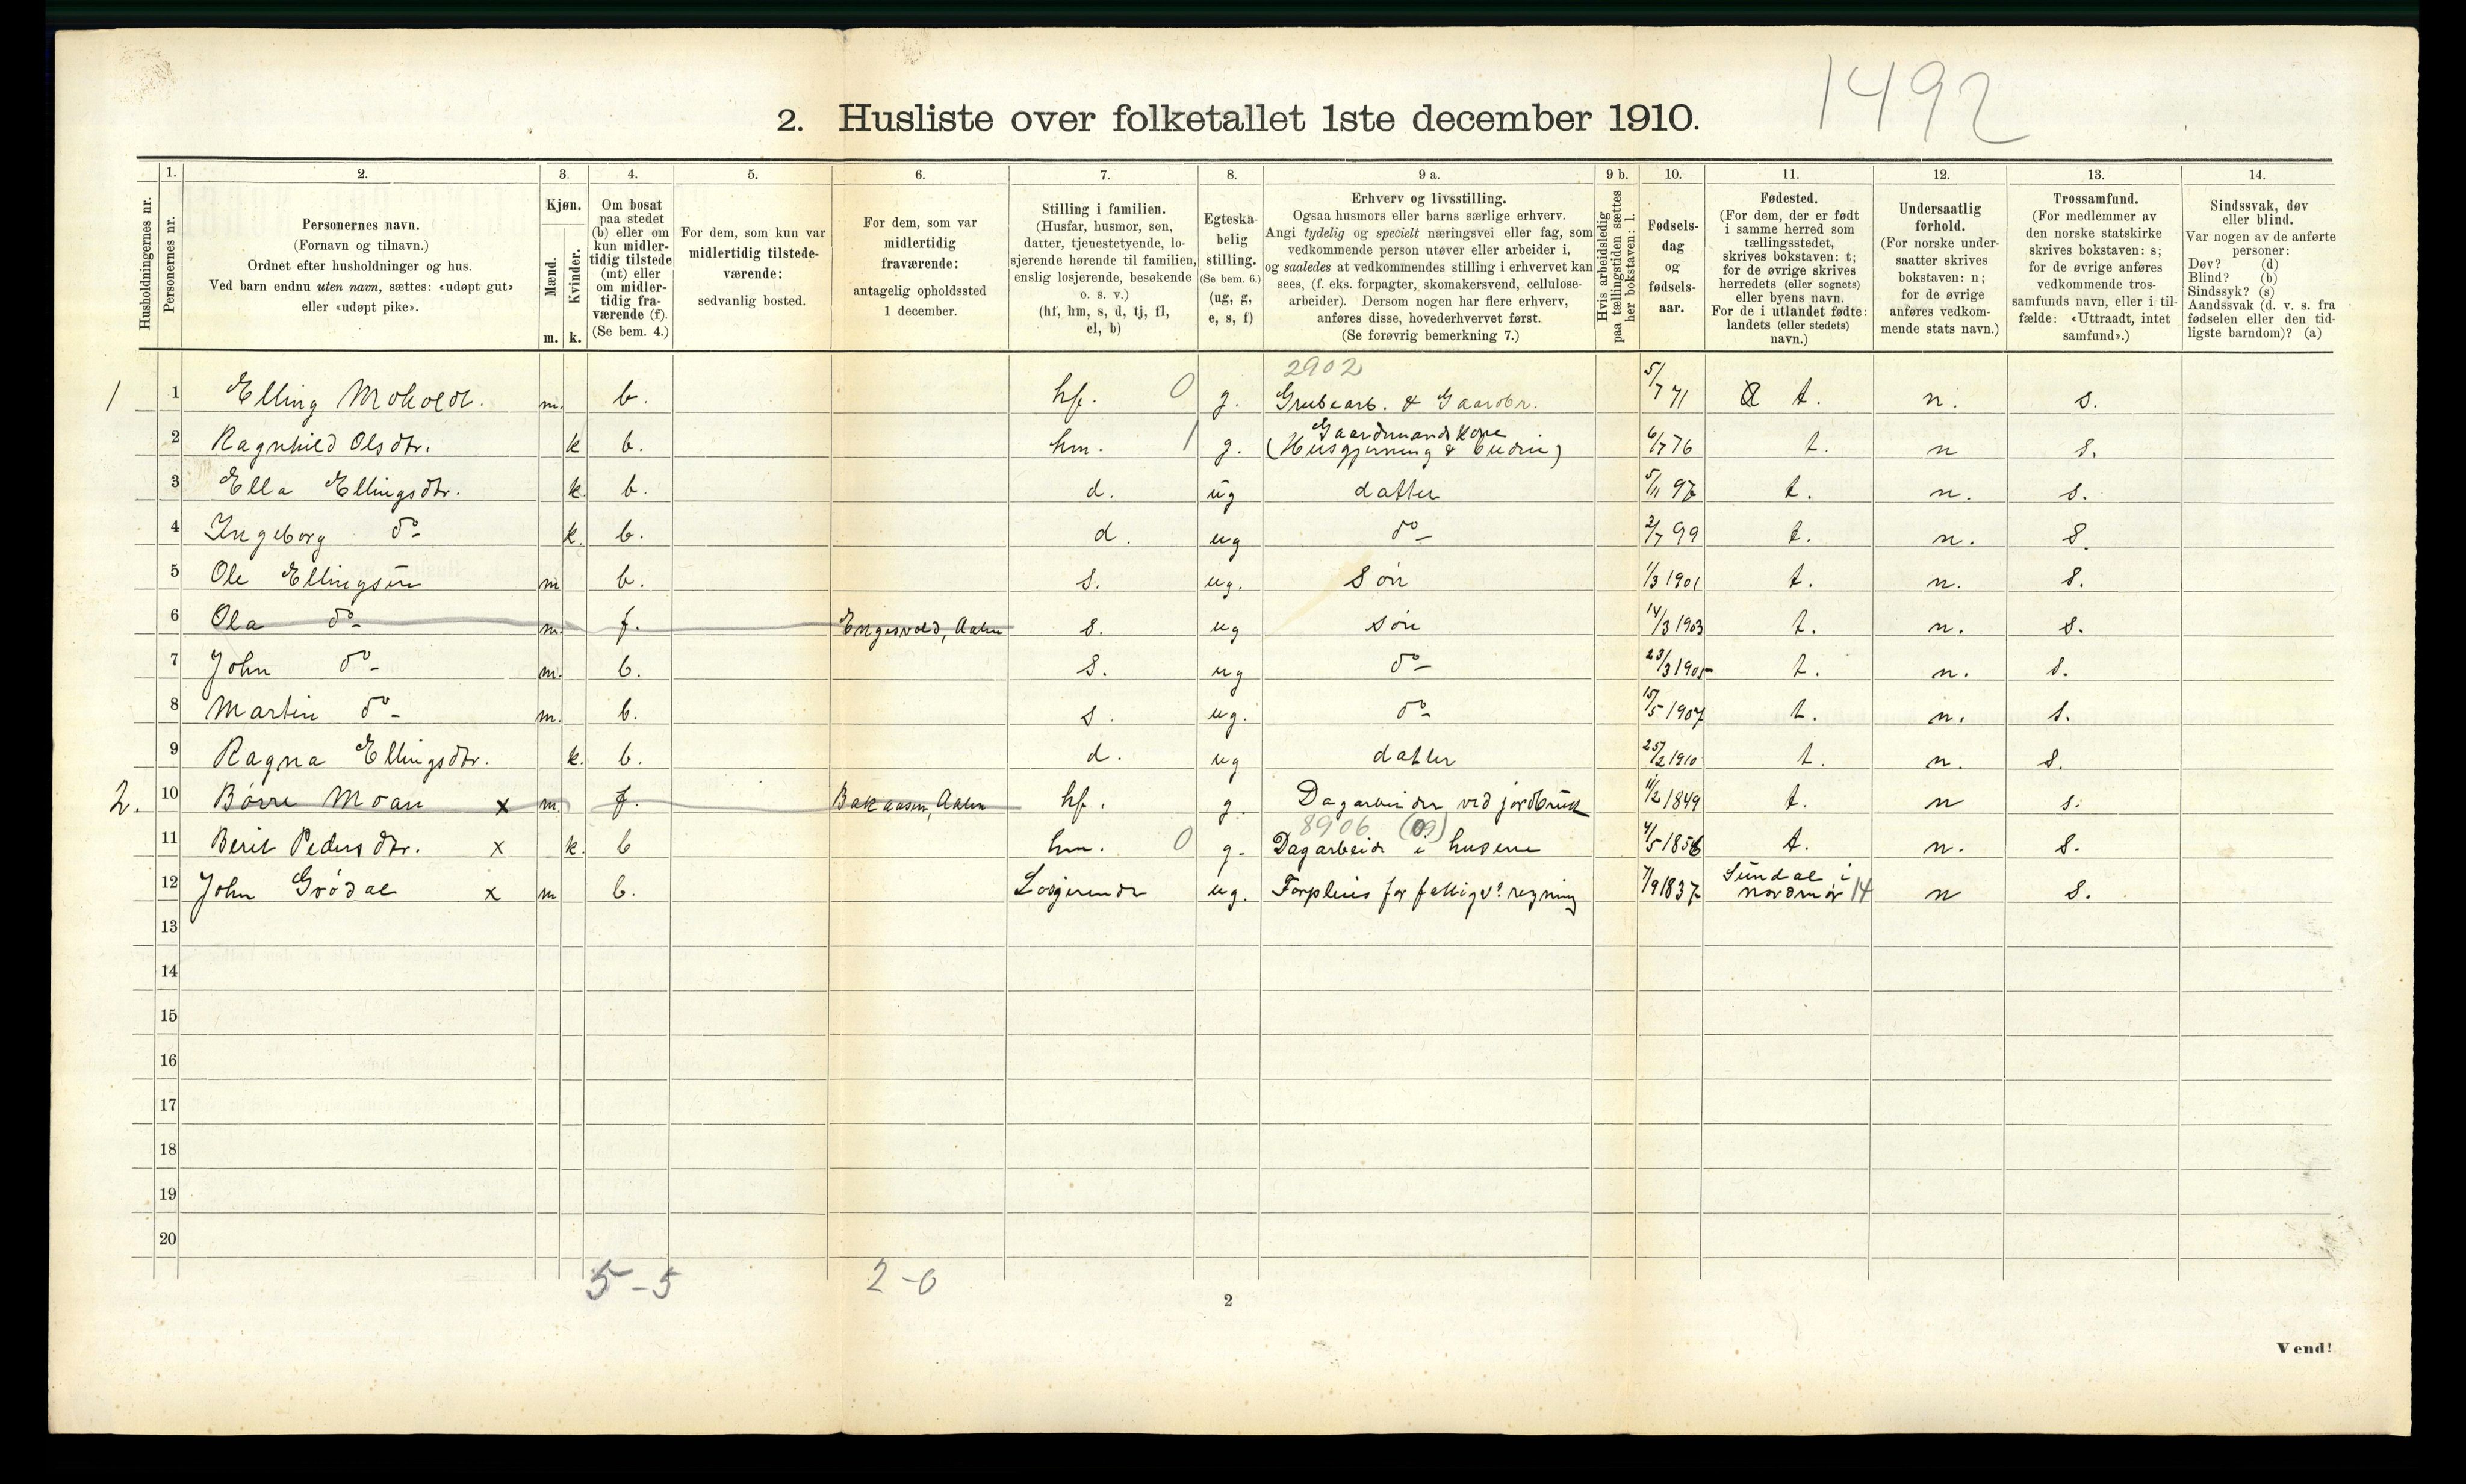 1492
2. Husliste over folketallet 1ste december 1910.
1. 2. 3. 4. 5. 6. 7. 8. 9 a. 9 b. 10. 11. 12. 13. 14.
Husholdningernes nr.
Personernes nr.
Personernes navn.
(Fornavn og tilnavn.)
Ordnet efter husholdninger og hus.
Ved barn endnu uten navn, sættes: «udøpt gut»
eller «udøpt pike».
Kjøn.
Mænd.
Kvinder.
m. k.
Om bosat
paa stedet
(b) eller om
kun midler-
tidig tilstede
(mt) eller
om midler-
tidig fra-
værende (f).
(Se bem. 4.)
For dem, som kun var
midlertidig tilstede-
værende:
sedvanlig bosted.
For dem, som var
midlertidig
fraværende:
antagelig opholdssted
1 december.
Stilling i familien.
(Husfar, husmor, søn,
datter, tjenestetyende, lo-
sjerende hørende til familien,
enslig losjerende, besøkende
o. s. v.)
(hf, hm, s, d, tj, fl,
el, b)
Egteska-
belig
stilling.
(Se bem. 6.)
(ug, g,
e, s, f)
Erhverv og livsstilling.
Ogsaa husmors eller barns særlige erhverv.
Angi tydelig og specielt næringsvei eller fag, som
vedkommende person utøver eller arbeider i,
og saaledes at vedkommendes stilling i erhvervet kan
sees, (f. eks. forpagter, skomakersvend, cellulose-
arbeider). Dersom nogen har flere erhverv,
anføres disse, hovederhvervet først.
(Se forøvrig bemerkning 7.)
Hvis arbeidsledig
paa tællingstiden sættes
her bokstaven: l.
Fødsels-
dag
og
fødsels-
aar.
Fødested.
(For dem, der er født
i samme herred som
tællingsstedet,
skrives bokstaven: t;
for de øvrige skrives
herredets (eller sognets)
eller byens navn.
For de i utlandet fødte:
landets (eller stedets)
navn.)
Undersaatlig
forhold.
(For norske under-
saatter skrives
bokstaven: n;
for de øvrige
anføres vedkom-
mende stats navn.)
Trossamfund.
(For medlemmer av
den norske statskirke
skrives bokstaven: s;
for de øvrige anføres
vedkommende tros-
samfunds navn, eller i til-
fælde: «Uttraadt, intet
samfund».)
Sindssvak, døv
eller blind.
Var nogen av de anførte
personer:
Døv? (d)
Blind? (b)
Sindssyk? (s)
Aandssvak (d. v. s. fra
fødselen eller den tid-
ligste barndom)? (a)
2902
1 1 Elling Moholdt. m. b. hf. 0 g. Grubearb. & Gaardbr. 5/7 71 t. n. s.
Gaardmandskone
2 Ragnhild Olsdtr. k b. hm. 1 g. (Husgjerning & budeie) 6/7 76 t. n s.
3 Ella Ellingsdtr. k. b. d. ug datter 5/11 97 t. n. s.
4 Ingeborg do k. b. d. ug do 2/7 99 t. n. s.
5 Ole Ellingsøn m b. s. ug. Søn 1/3 1901 t. n. s.
6 Ola do m. f. Engesvold, Aalen s. ug søn 14/3 1903 t. n. s.
7 John do m. b. s. ug do 23/3 1905 t. n. s.
8 Martin do m. b. s. ug. do 15/5 1907 t. n. s.
9 Ragna Ellingsdtr. k. b. d. ug datter 25/2 1910 t. n. s.
2. 10 Børre Moan x m f. Bakaasen, Aalen hf. g. Dagarbeider ved jordbruk 11/2 1849 t. n s.
8906 (09)
11 Berit Pedersdtr. x k. b hm. 0 g. Dagarbeide i husene 4/5 1856 t. n. s.
12 John Grödal x m b. Losjerende ug. Forpleies for fattigvs regning 7/9 1837 Sundal i
Nordmør 14 n s.
13
14
15
16
17
18
19
20
5-5 2-0
2
Vend!